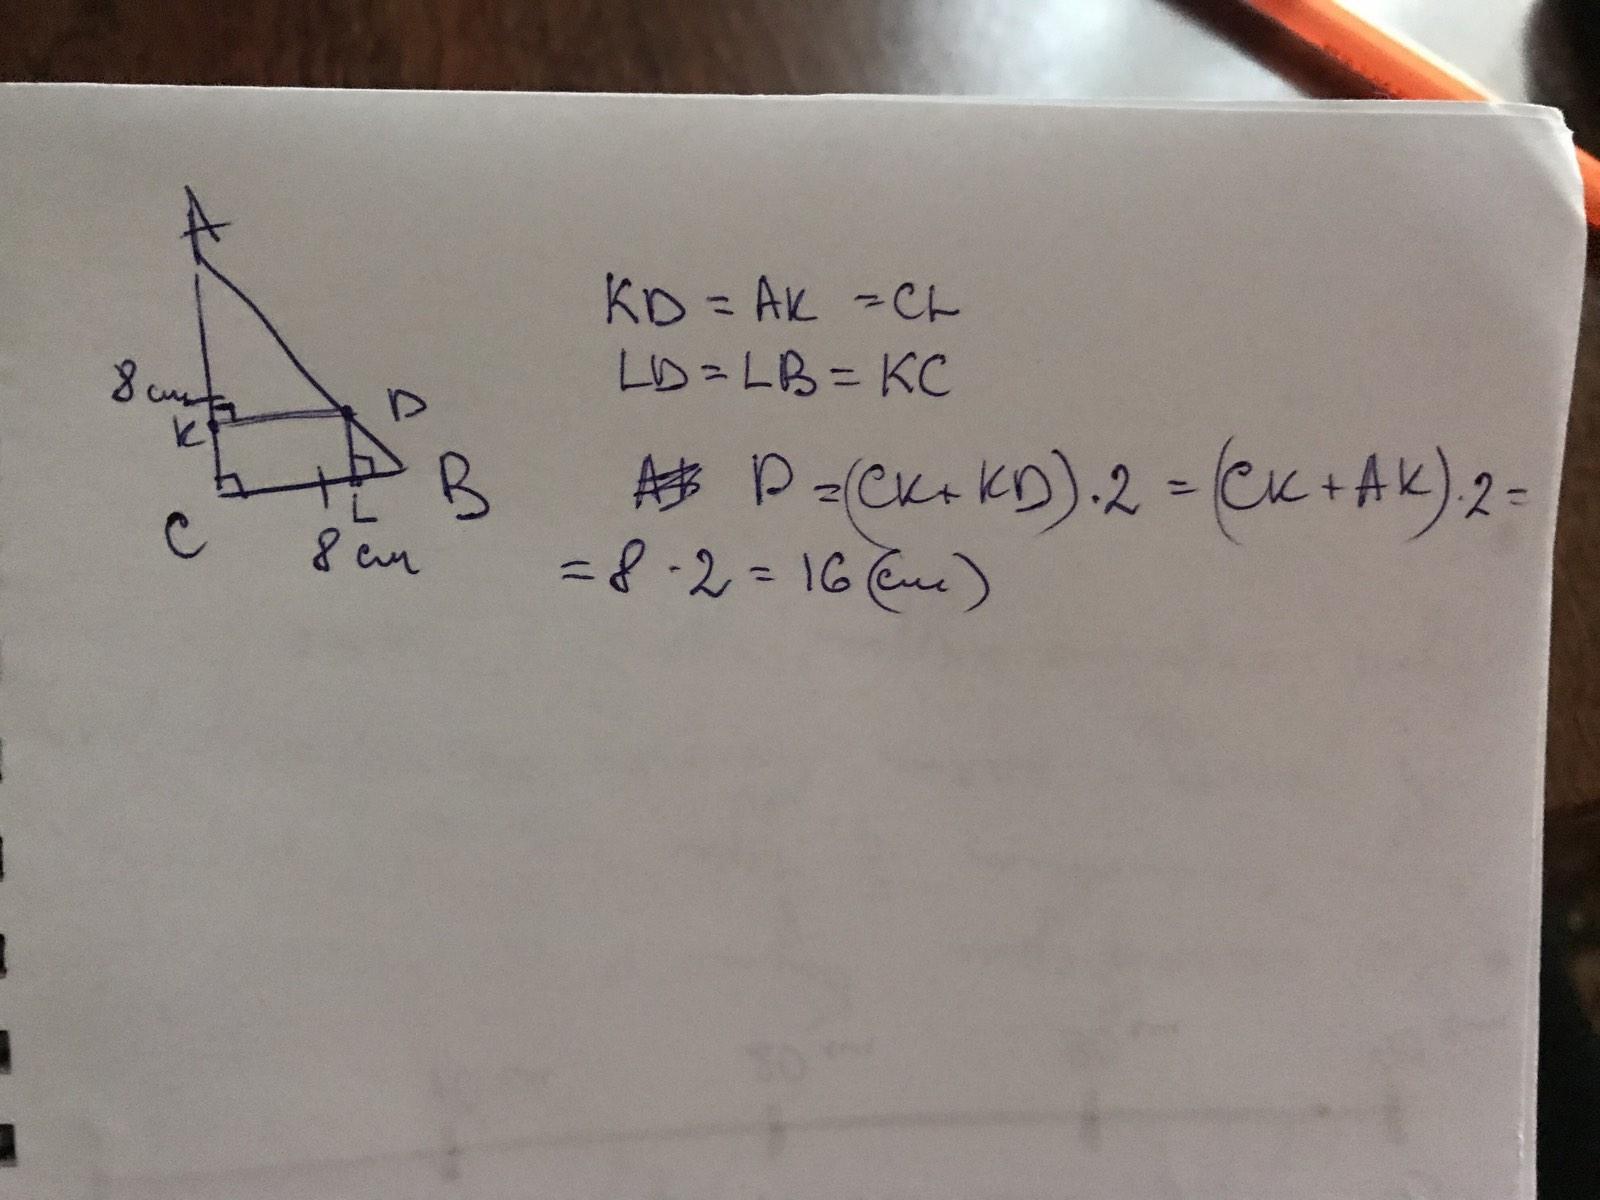 A
8 cm
K
D
C
L
B
8 cm
KD = AK = CL
LD = LB = KC
D = (CK + KD) · 2 = (CK + AK) · 2 =
= 8 · 2 = 16 (cm)